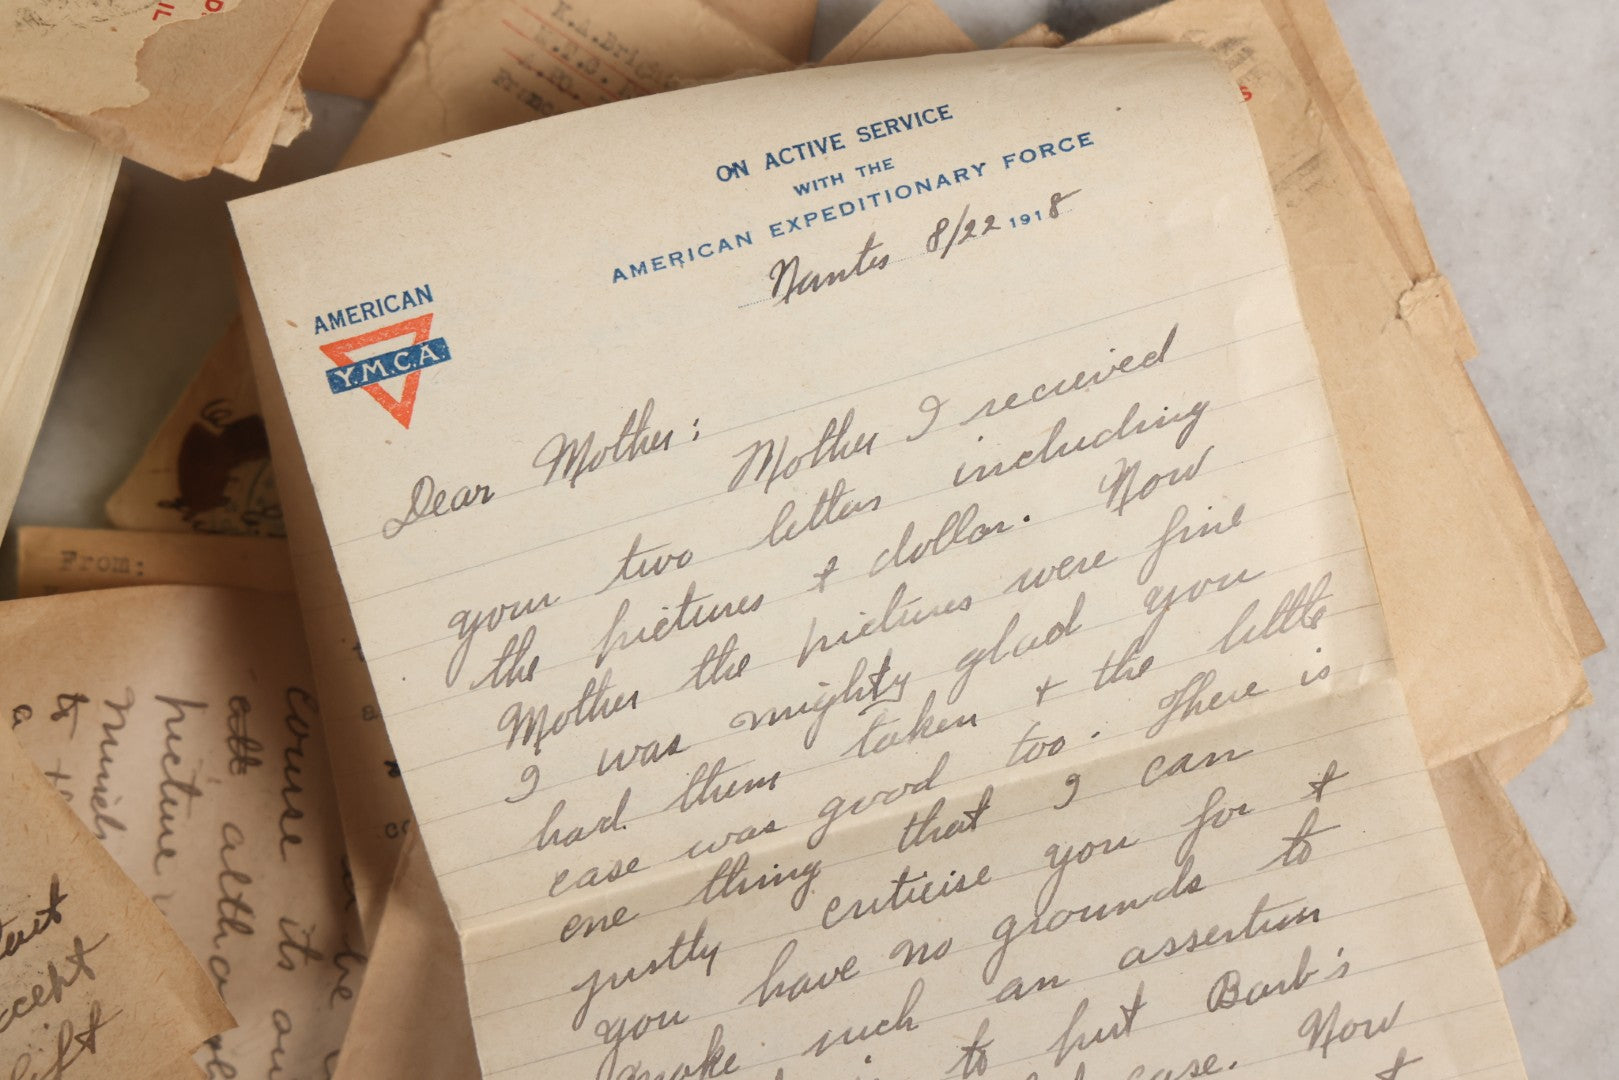 K.A.Brigh
R.T.S.
From:
ON ACTIVE SERVICE
WITH THE
AMERICAN EXPEDITIONARY FORCE
Nantes 8/22 1918
AMERICAN
Y.M.C.A.
Dear Mother:
Mother I recieved
your two letters including
the pictures & dollar. Now
Mother the pictures were fine
I was mighty glad you
had them taken & the little
case was good too. There is
one thing that I can
justly criticise you for &
you have no grounds to
make such an assertion
to put Barb's
case. Now
course its our
although
picture
accept